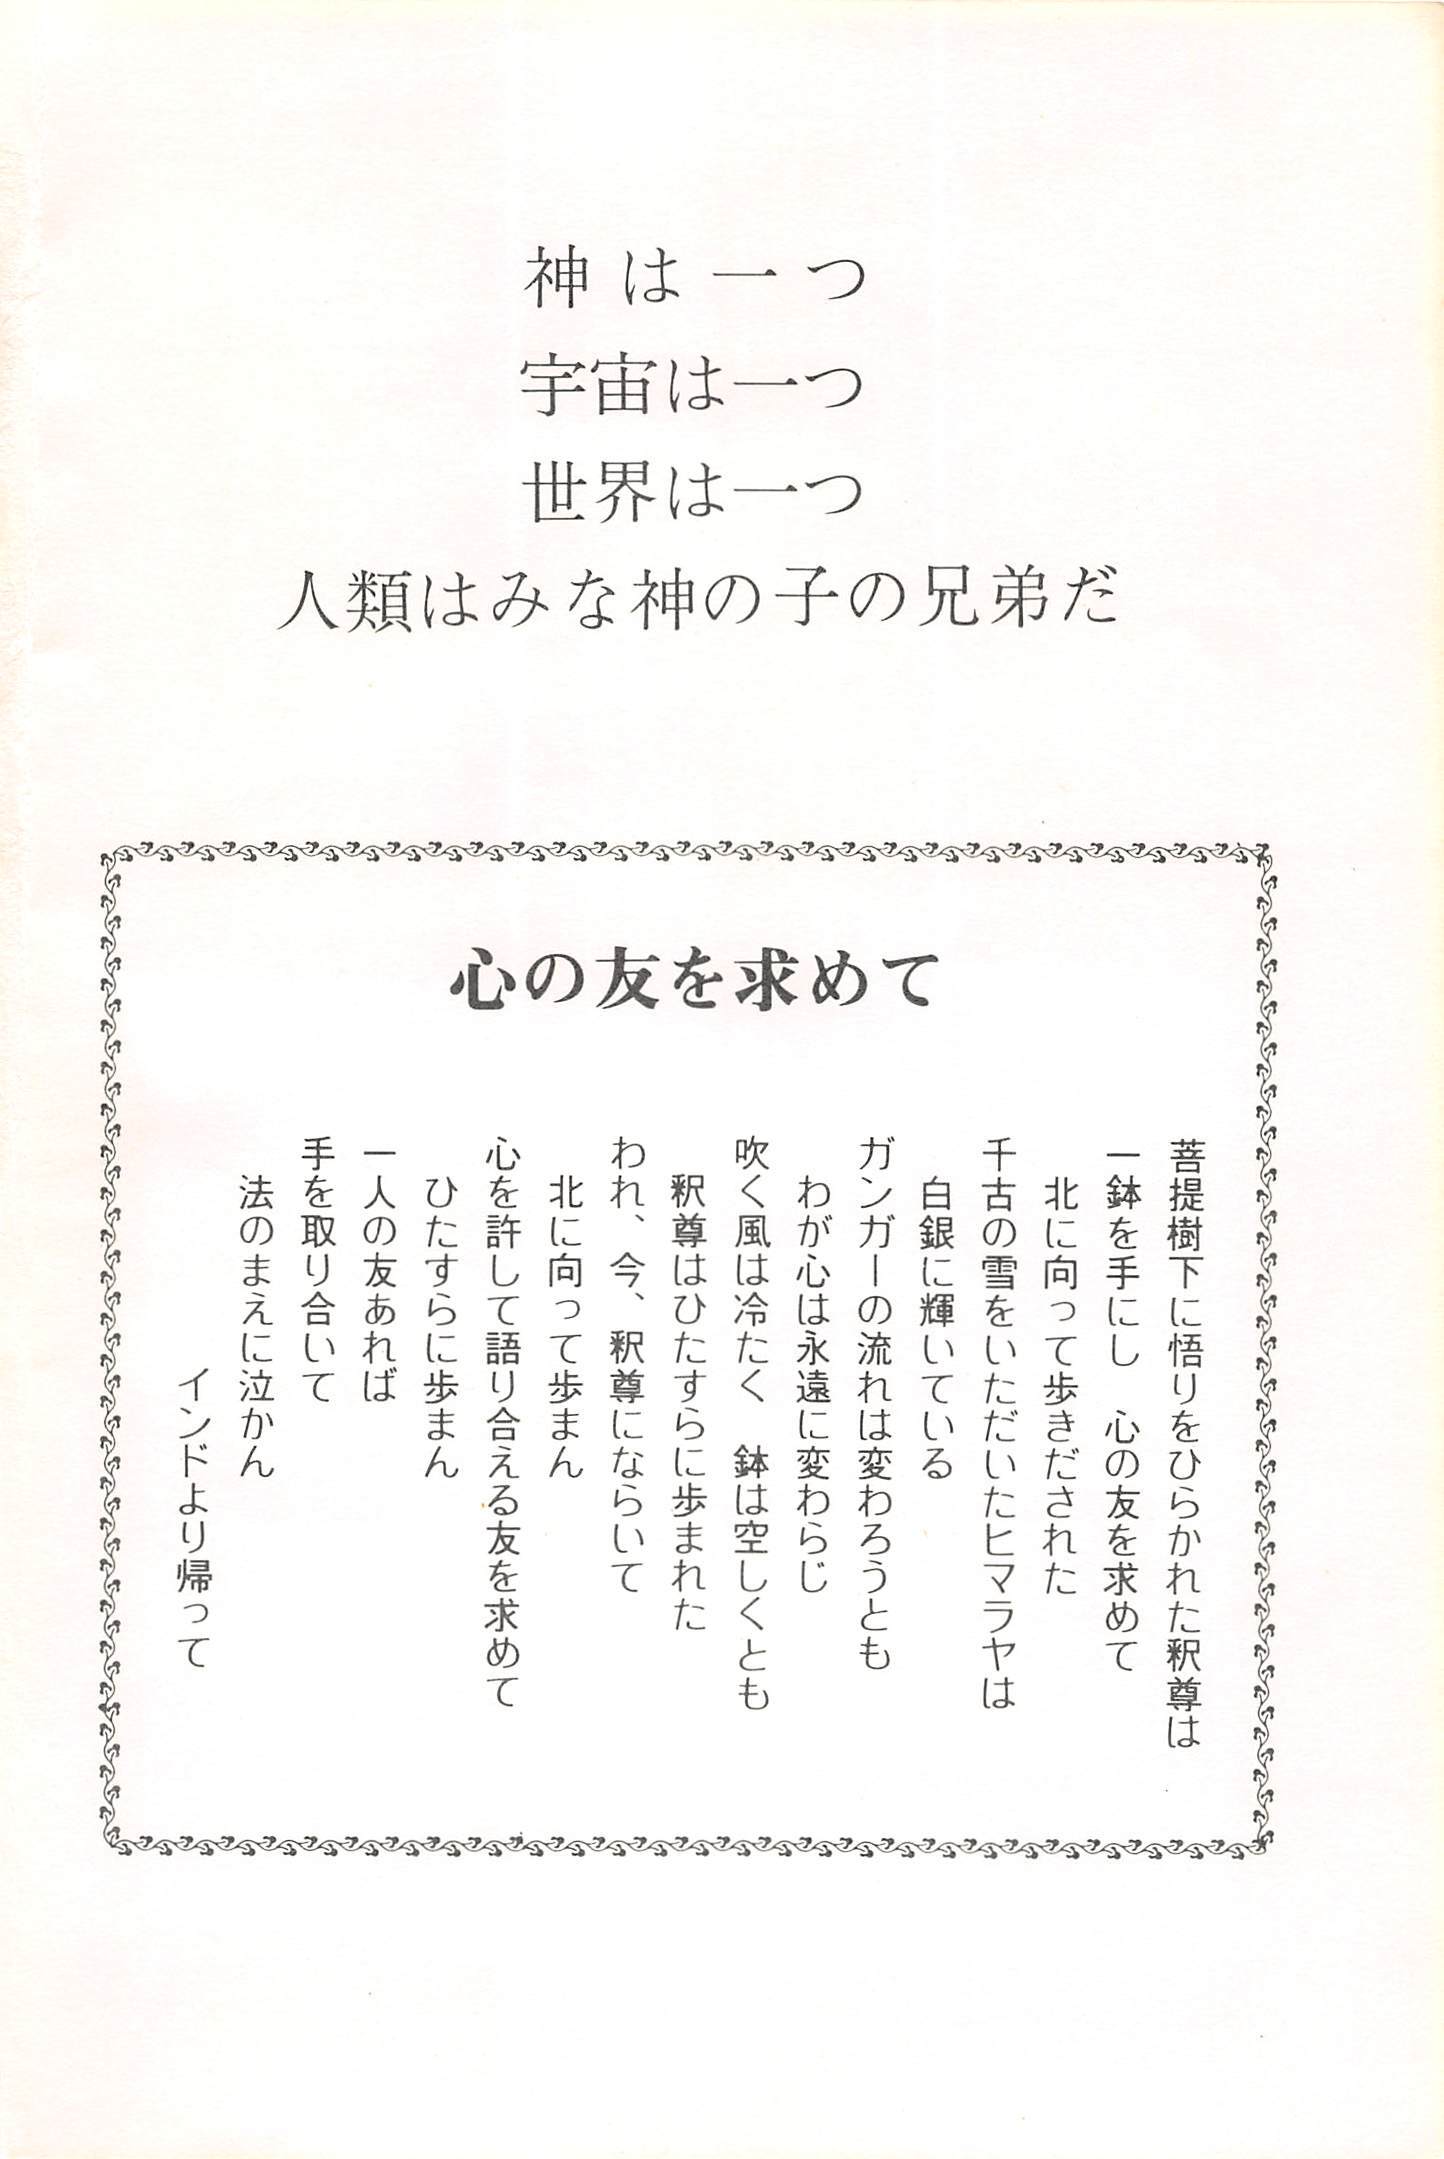 神は一つ
宇宙は一つ
世界は一つ
人類はみな神の子の兄弟だ
心の友を求めて
菩提樹下に悟りをひらかれた釈尊は
一鉢を手にし　心の友を求めて
北に向って歩きだされた
千古の雪をいただいたヒマラヤは
白銀に輝いている
ガンガーの流れは変わろうとも
わが心は永遠に変わらじ
吹く風は冷たく　鉢は空しくとも
釈尊はひたすらに歩まれた
われ、今、釈尊にならいて
北に向って歩まん
心を許して語り合える友を求めて
ひたすらに歩まん
一人の友あれば
手を取り合いて
法のまえに泣かん
インドより帰って